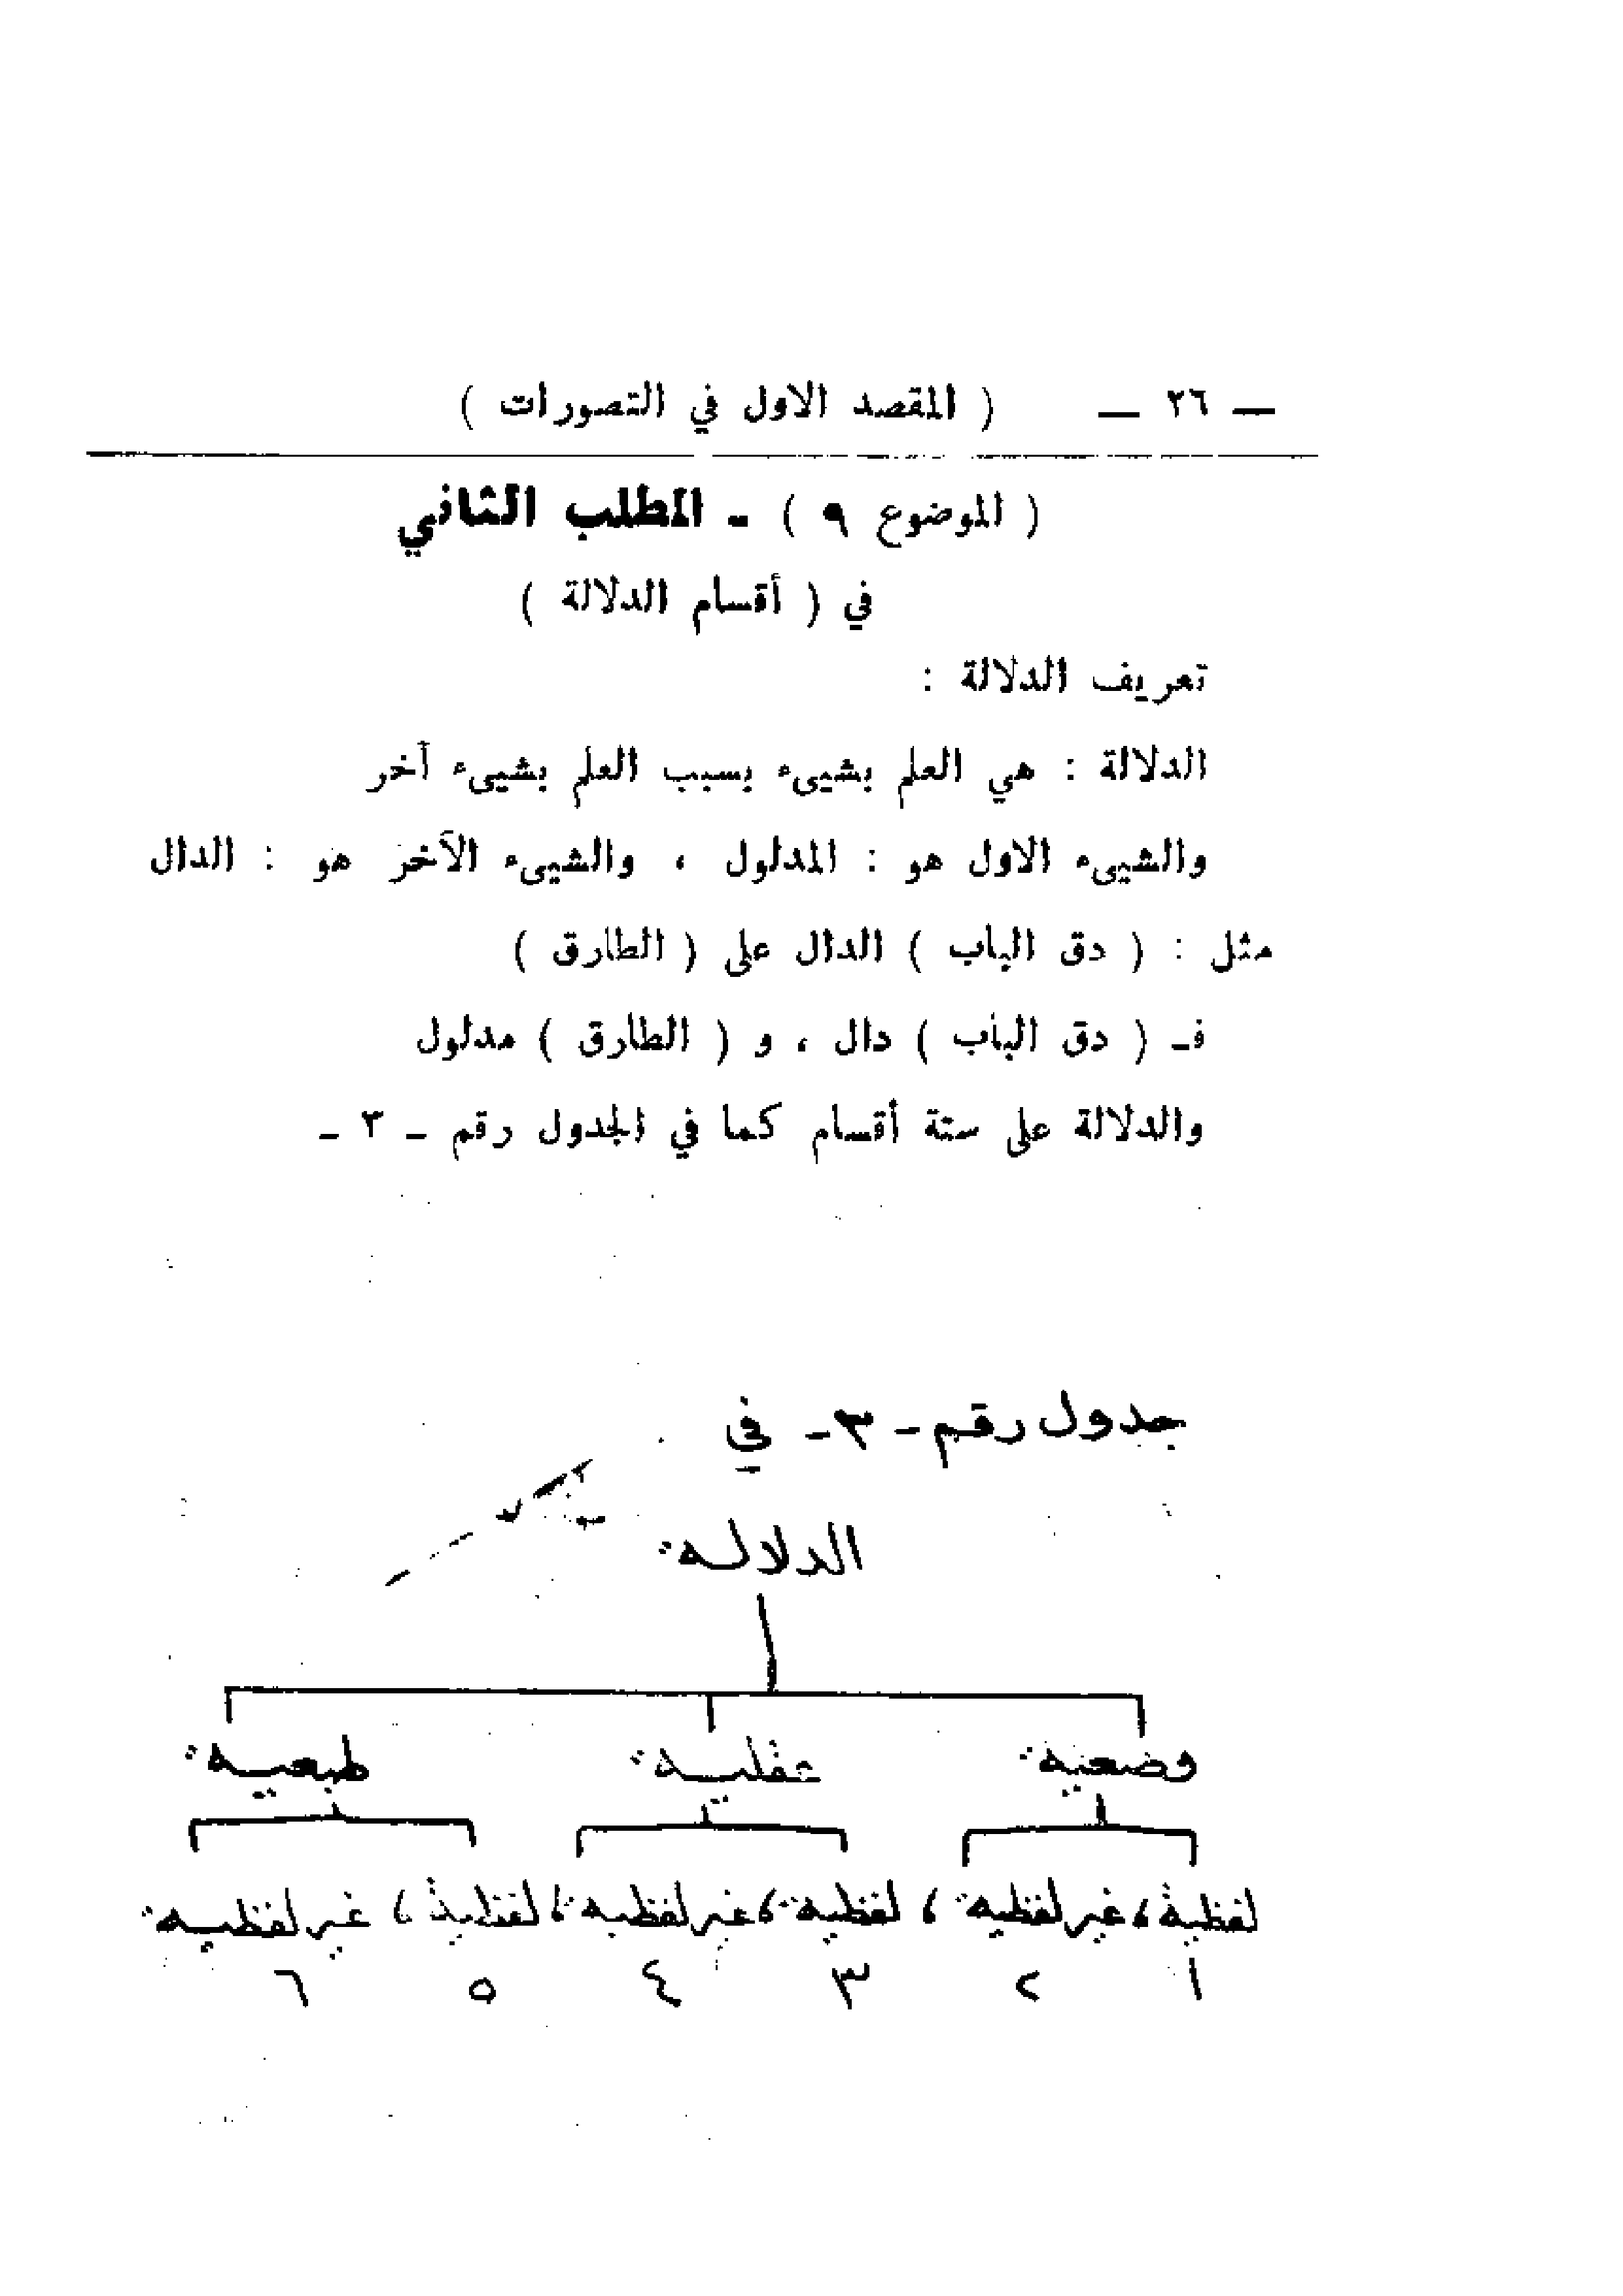 — ٢٦ — ( المقصد الاول في التصورات )
( الموضوع ٩ ) - المطلب الثاني
في ( أقسام الدلالة )
تعريف الدلالة :
الدلالة : هي العلم بشيىء بسبب العلم بشيىء آخر
والشيىء الاول هو : المدلول ، والشيىء الآخر هو : الدال
مثل : ( دق الباب ) الدال على ( الطارق )
فـ ( دق الباب ) دال ، و ( الطارق ) مدلول
والدلالة على ستة أقسام كما في الجدول رقم - ٣ -
جدول رقم - ٣ - في
الدلالة
وضعية عقلية طبعية
لفظية ، غير لفظية ، لفظية ، غير لفظية ، لفظية ، غير لفظية
١ ٢ ٣ ٤ ٥ ٦